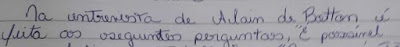 Na entrevista de Alain de Botton, é
feita as seguintes perguntas, "É possível